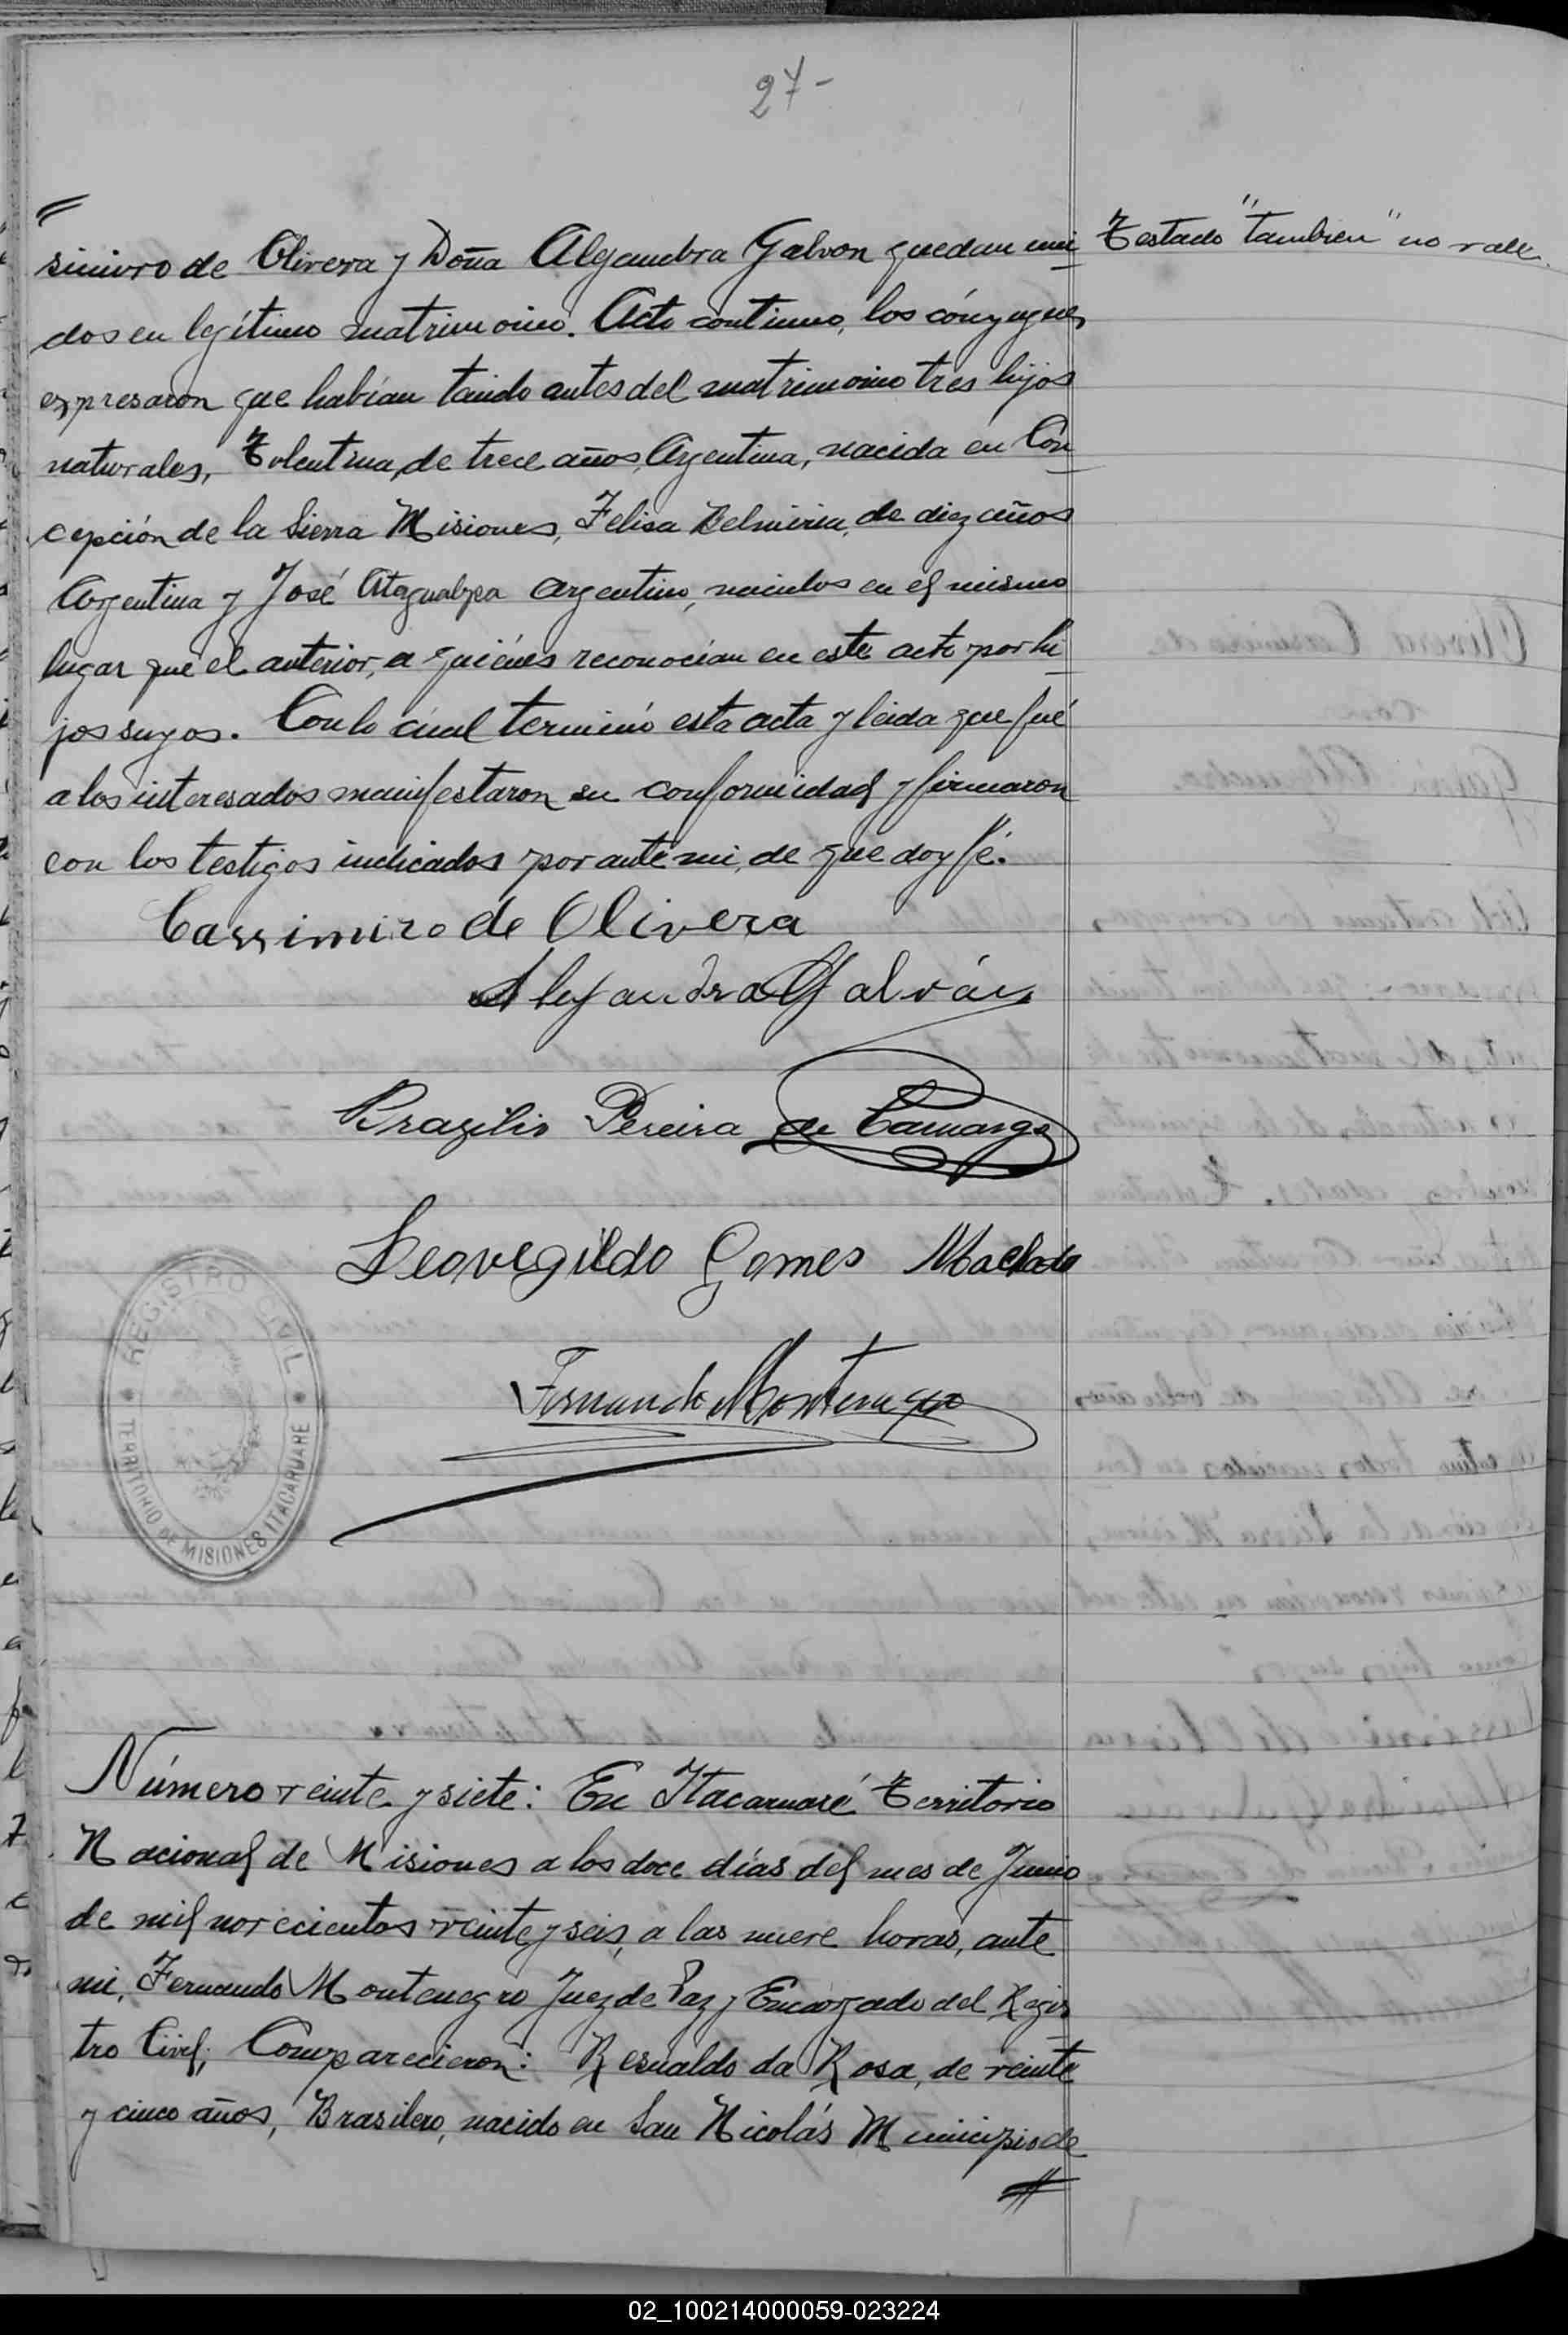 27-
simiro de Olivera y Doña Alejandra Galvan quedan uni
Testado "tambien" no vale.
dos en legítimo matrimonio. Acto continuo, los cónyugues
expresaron que habían tenido antes del matrimonio tres hijos
naturales, Tolentina, de trece años, Argentina, nacida en Con
cepción de la Sierra Misiones, Felisa Belmiria, de diez años
Argentina y José Atagualpa argentino, nacidos en el mismo
lugar que el anterior, a quiénes reconocían en este acto por hi
jos suyos. Con lo cúal terminó esta acta y leida que fué
a los interesados manifestaron su conformidad y firmaron
con los testigos indicados por ante mi, de que doy fé.
Cassimiro de Olivera
Alejandra Galván
Brazilio Pereira de Camargo
Leovegildo Gomes Machado
Fernando Montenegro
REGISTRO CIVIL
TERRITORIO DE MISIONES ITACARUARE
Número veinte y siete: En Itacaruaré Territorio
Nacional de Misiones a los doce días del mes de Junio
de mil novecientos veinte y seis, a las nueve horas, ante
mi, Fernando Montenegro Juez de Paz y Encargado del Regis
tro Civil, Comparecieron: Resualdo da Rosa, de veinte
y cinco años, Brasilero, nacido en San Nicolás Municipio de
02_100214000059-023224